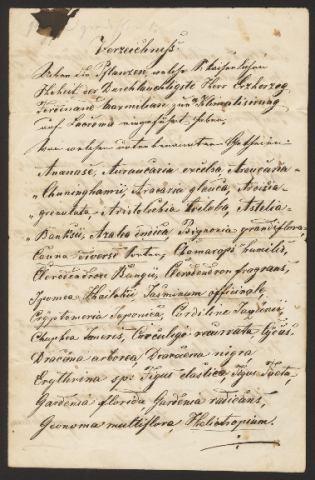 Verzeichniß
Ueber die Pflanzen, welche S. Kaiserliche
Hoheit der Durchlauchtigste Herr Erzherzog
Ferdinand Maximilian zur Aklimatisirung
auf Lacroma eingeführt haben,
von welchen
Ananasse, Auraucaria excelsa, Araucaria
Chuninghamii, Aralia glauca, Ardisia
grenulata, Aristolochia triloba, Astelia
Banksii, Azalea indica, Bignonia grandiflora,
Canna diverse Sorten, Chamærops humilis,
Clerodendron Bungii, Clerodendron fragrans,
Ipomea Jasminum officinale,
Cryptomeria Japonica, Cordiline
Cuphea Curculigo recurvata
Dracæna arborea, Dracoena nigra
Erythrina sps: Ficus elastica, Ficus
Gardenia florida Gardenia radicans,
Geonoma multiflora, Heliotropium.